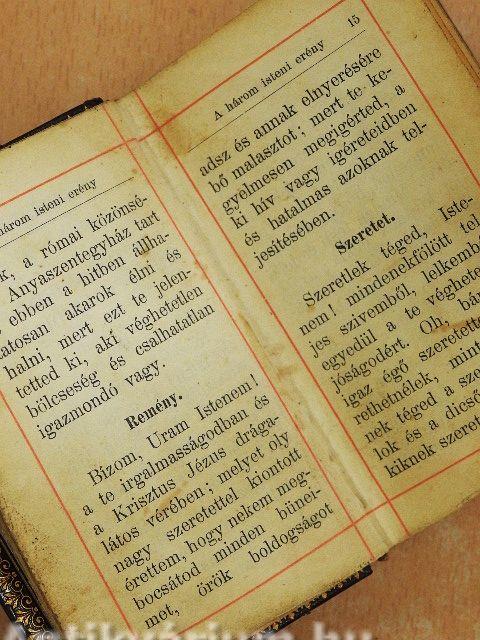 három isteni erény
a római közönsé-
Anyaszentegyház tart
ebben a hitben állha-
tatosan akarok élni és
halni, mert ezt te jelen-
tetted ki, aki véghetetlen
bölcseség és csalhatatlan
igazmondó vagy.
Remény.
Bizom, Uram Istenem!
a te irgalmasságodban és
a Krisztus Jézus drága-
látos vérében; melyet oly
nagy szeretettel kiontott
érettem, hogy nekem meg-
bocsátod minden bünei-
met, örök boldogságot
A három isteni erény 15
adsz és annak elnyerésére
bő malasztot; mert te ke-
gyelmesen megigérted, a
ki hív vagy igéreteidben
és hatalmas azoknak tel-
jesítésében.
Szeretet.
Szeretlek téged, Iste-
nem! mindenekfölött tel
jes szivemből, lelkemb
egyedül a te véghete
jóságodért. Oh, bár
igaz égő szeretette
rethetnélek, mint
nek téged a sze
lok és a dicső
kiknek szeret